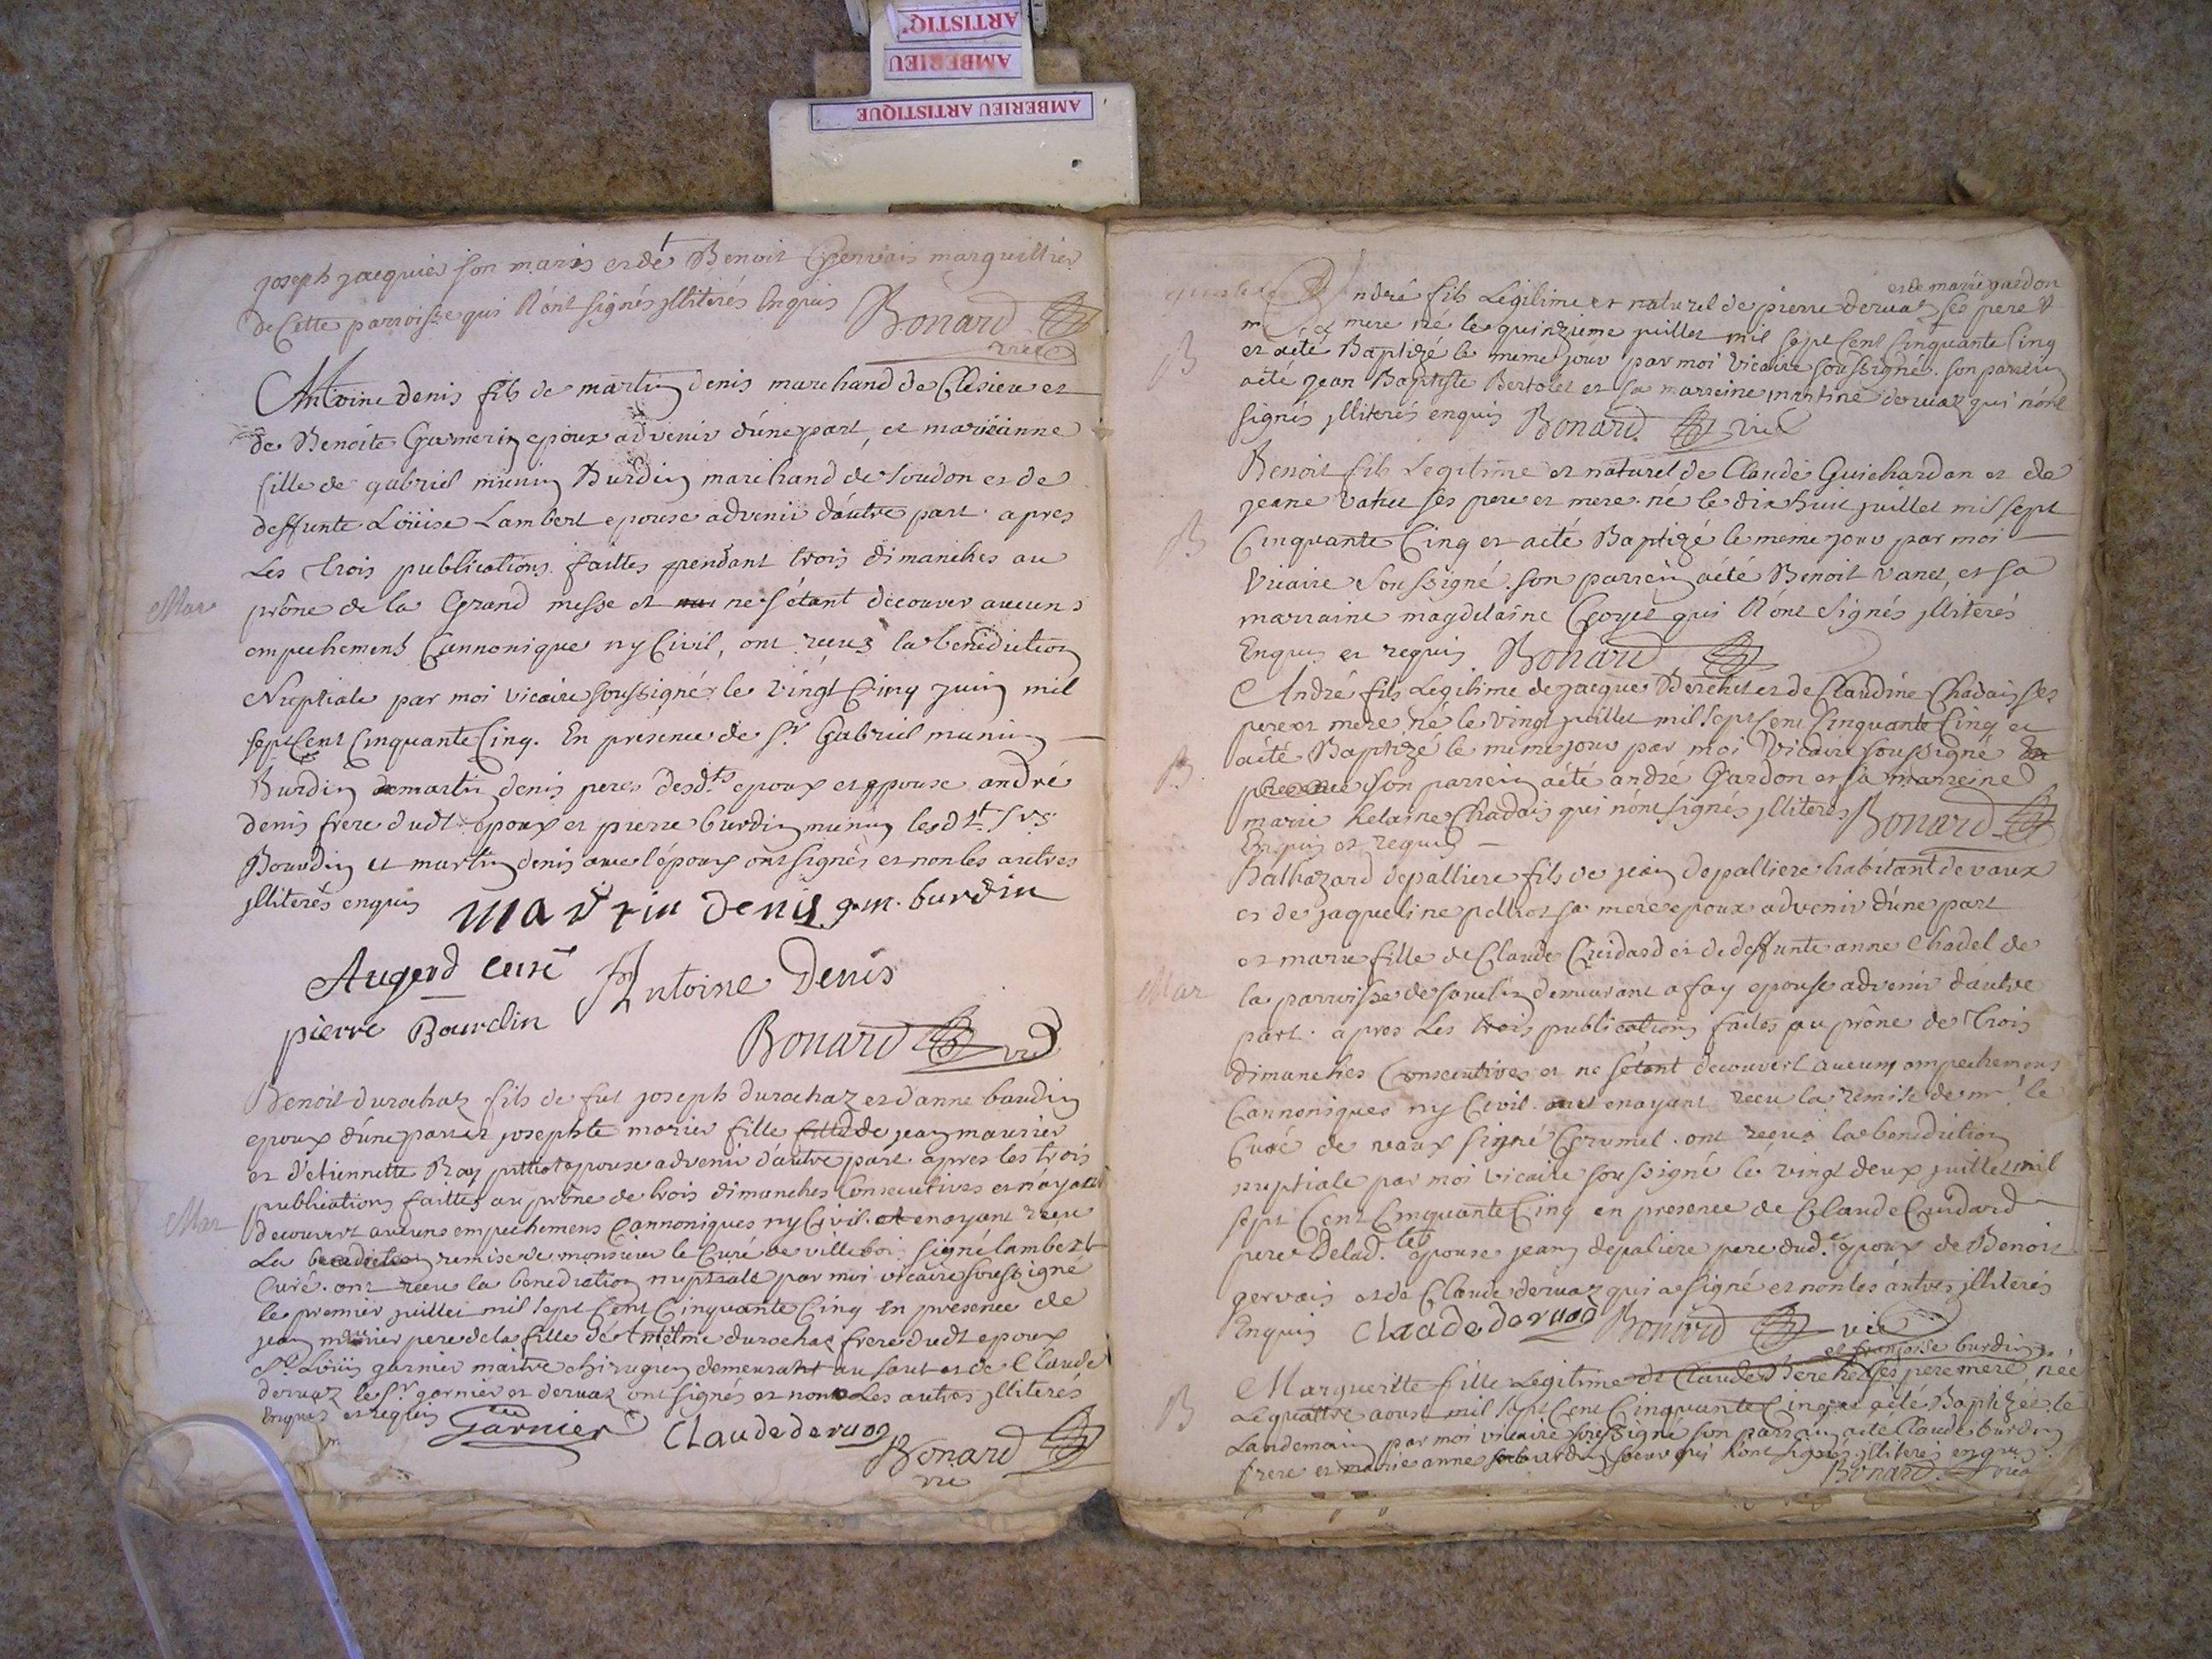 ARTISTIQ'
AMBERIEU
AMBERIEU ARTISTIQUE
joseph jacquier son maris et de Benoit Gervais marguillier
de Cette parroisse qui n'ont signés jlliterés Enquis Bonard
vic
Antoine Denis fils de martin denis marchand de et
de Benoite epoux advenir d'une part, et marianne
fille de gabriel munin Burdin marchand de Soudon et de
deffunte Loüise Lambert epouse advenir d'autre part. apres
Les trois publications faittes pendant trois dimanches au
Mar
prône de la Grand messe et ne s'étant decouver aucuns
empechement Cannonique ny Civil, ont receus la benediction
Nuptiale par moi vicaire soussigné le vingt Cinq juin mil
sept Cent Cinquante Cinq. En presence de Sr Gabriel munin
Burdin martin denis peres desdts epoux et epouse andré
denis frere dudt epoux et pierre burdin munin lesdts Srs
Bourdin et martin denis avec l'époux ont signés et non les autres
jlliterés enquis martin denis g. m. burdin
Augerd curé Antoine Denis
pierre Bourdin
Bonard vic
Benoit durochaz fils de fut joseph durochaz et d'anne baudin
epoux d'une part et josephte morier fille fille de jean maurier
et d'etiennette Ray epouse advenir d'autre part. apres les trois
publications faittes au prône de trois dimanches Consecutives et n'ayant
Mar
decouvert aucuns empechemens Cannoniques ny Civil. et en ayant receu
La benediction remise de monsieur le Curé de villeboi. signé lambert
Curé. ont receu la benediction nuptiale par moi vicaire soussigné
le premier juillet mil sept Cent Cinquante Cinq En presence de
jean morier pere de la fille de Antelme durochaz frere dudt epoux
Sr Loüis garnier maitre chirugien demeurant au saut et de Claude
dervaz le Sr garnier et dervaz ont signés et non Les autres jlliterés
Enquis et requis Garnier Claude dervaz
Bonard
vic
et de marie gardon
André fils Legitime et naturel de pierre dervaz ses pere et
mere né le quinzieme juillet mil sept Cent Cinquante Cinq
B
et a été Baptizé le meme jour par moi Vicaire soussigné. son parrein
a été jean Baptiste Bertolet et sa marreine martine dervaz qui n'ont
signés jlliterés enquis Bonard vic
Benoit fils Legitime et naturel de Claude Guichardon et de
jeane vanet ses pere et mere. né le dix huit juillet mil sept
B
Cinquante Cinq et a été Baptizé le meme jour par moi
Vicaire soussigné. son parrein a été Benoit vanet, et sa
marraine magdelaine Goyet qui N'ont signés jlliterés
Enquis et requis Bonard
André fils Legitime de jacques Derchet et de Claudine Chadais ses
pere et mere né le vingt juillet mil sept Cent Cinquante Cinq et
B
a été Baptizé le meme jour par moi Vicaire soussigné
son parrein a été andré Gardon et sa marreine
marie helaine Chadais qui n'ont signés jlliterés Bonard
Enquis et requis
Balthazard depalliere fils de jean depalliere habitant de vaux
et de jaqueline pellot sa mere epoux advenir d'une part
et marie fille de Claude Cuidard et de deffunte anne Chadel de
Mar
la parroisse de demeurant a fay epouse advenir d'autre
part. apres Les trois publications faites au prône de trois
dimanches Consecutives et ne s'étant decouvert aucun empechemens
Cannoniques ny Civil. en ayant receu la remise de mr le
Curé de vaux signé Grumel. ont receus la benediction
nuptiale par moi vicaire soussigné le vingt deux juillet mil
sept Cent Cinquante Cinq en presence de Claude Cuidard
pere Delad. te epouse jean depaliere pere dud. t epoux de Benoit
gervais et de Claude dervaz qui a signé et non les autres jlliterés
Enquis Claude dervaz Bonard vic
et françoise burdin
Margueritte fille Legitime de Claude Derchet ses pere mere, née
B
Le quattre aoust mil sept Cent Cinquante Cinq et a été Baptizée le
Landemain par moi vicaire soussigné son parrain a été Claude burdin
frere et marie anne burdin soeur qui n'ont signés jlliterés enquis
Bonard vic